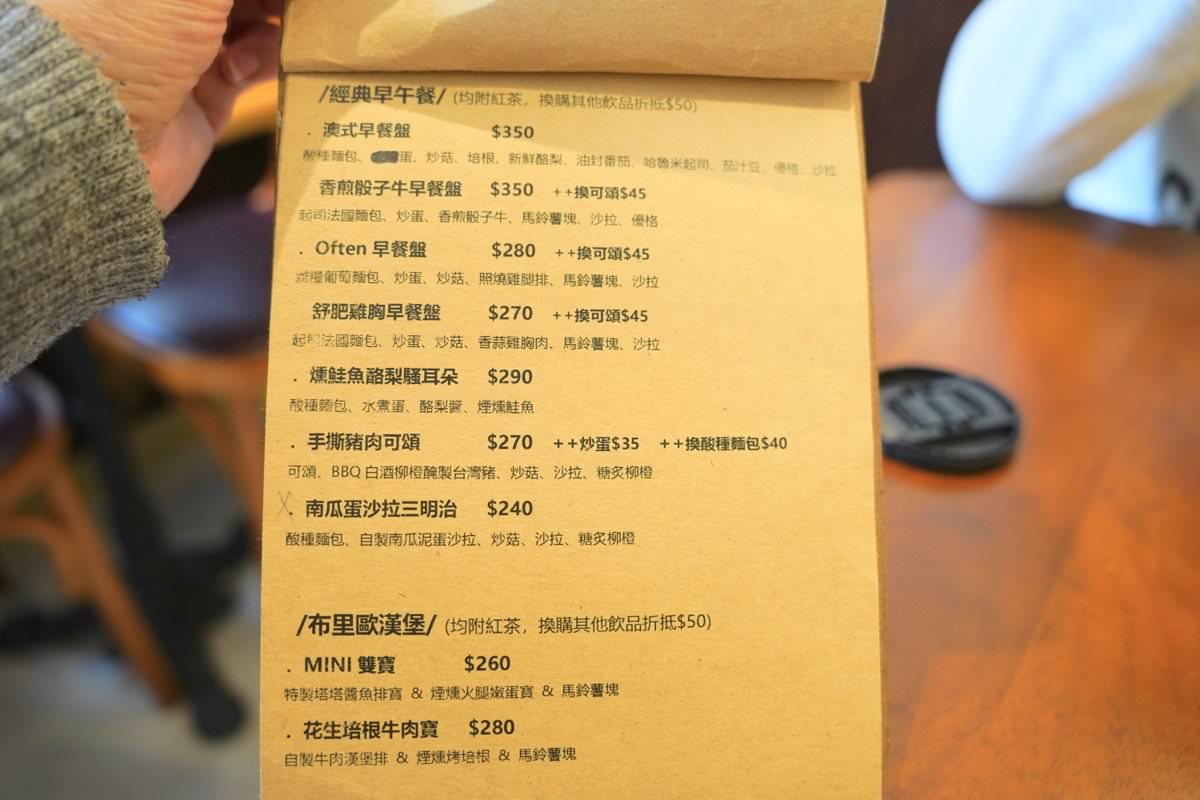 /經典早午餐/ (均附紅茶，換購其他飲品折抵$50)
. 澳式早餐盤 $350
酸種麵包、蛋、炒菇、培根、新鮮酪梨、油封番茄、哈魯米起司、茄汁豆、優格、沙拉
香煎骰子牛早餐盤 $350 ++換可頌$45
起司法國麵包、炒蛋、香煎骰子牛、馬鈴薯塊、沙拉、優格
. Often 早餐盤 $280 ++換可頌$45
葡萄麵包、炒蛋、炒菇、照燒雞腿排、馬鈴薯塊、沙拉
舒肥雞胸早餐盤 $270 ++換可頌$45
起司法國麵包、炒蛋、炒菇、香蒜雞胸肉、馬鈴薯塊、沙拉
. 燻鮭魚酪梨騷耳朵 $290
酸種麵包、水煮蛋、酪梨醬、煙燻鮭魚
. 手撕豬肉可頌 $270 ++炒蛋$35 ++換酸種麵包$40
可頌、BBQ 白酒柳橙醃製台灣豬、炒菇、沙拉、糖炙柳橙
X. 南瓜蛋沙拉三明治 $240
酸種麵包、自製南瓜泥蛋沙拉、炒菇、沙拉、糖炙柳橙
/布里歐漢堡/ (均附紅茶，換購其他飲品折抵$50)
. MINI 雙寶 $260
特製塔塔醬魚排寶 & 煙燻火腿嫩蛋寶 & 馬鈴薯塊
. 花生培根牛肉寶 $280
自製牛肉漢堡排 & 煙燻烤培根 & 馬鈴薯塊